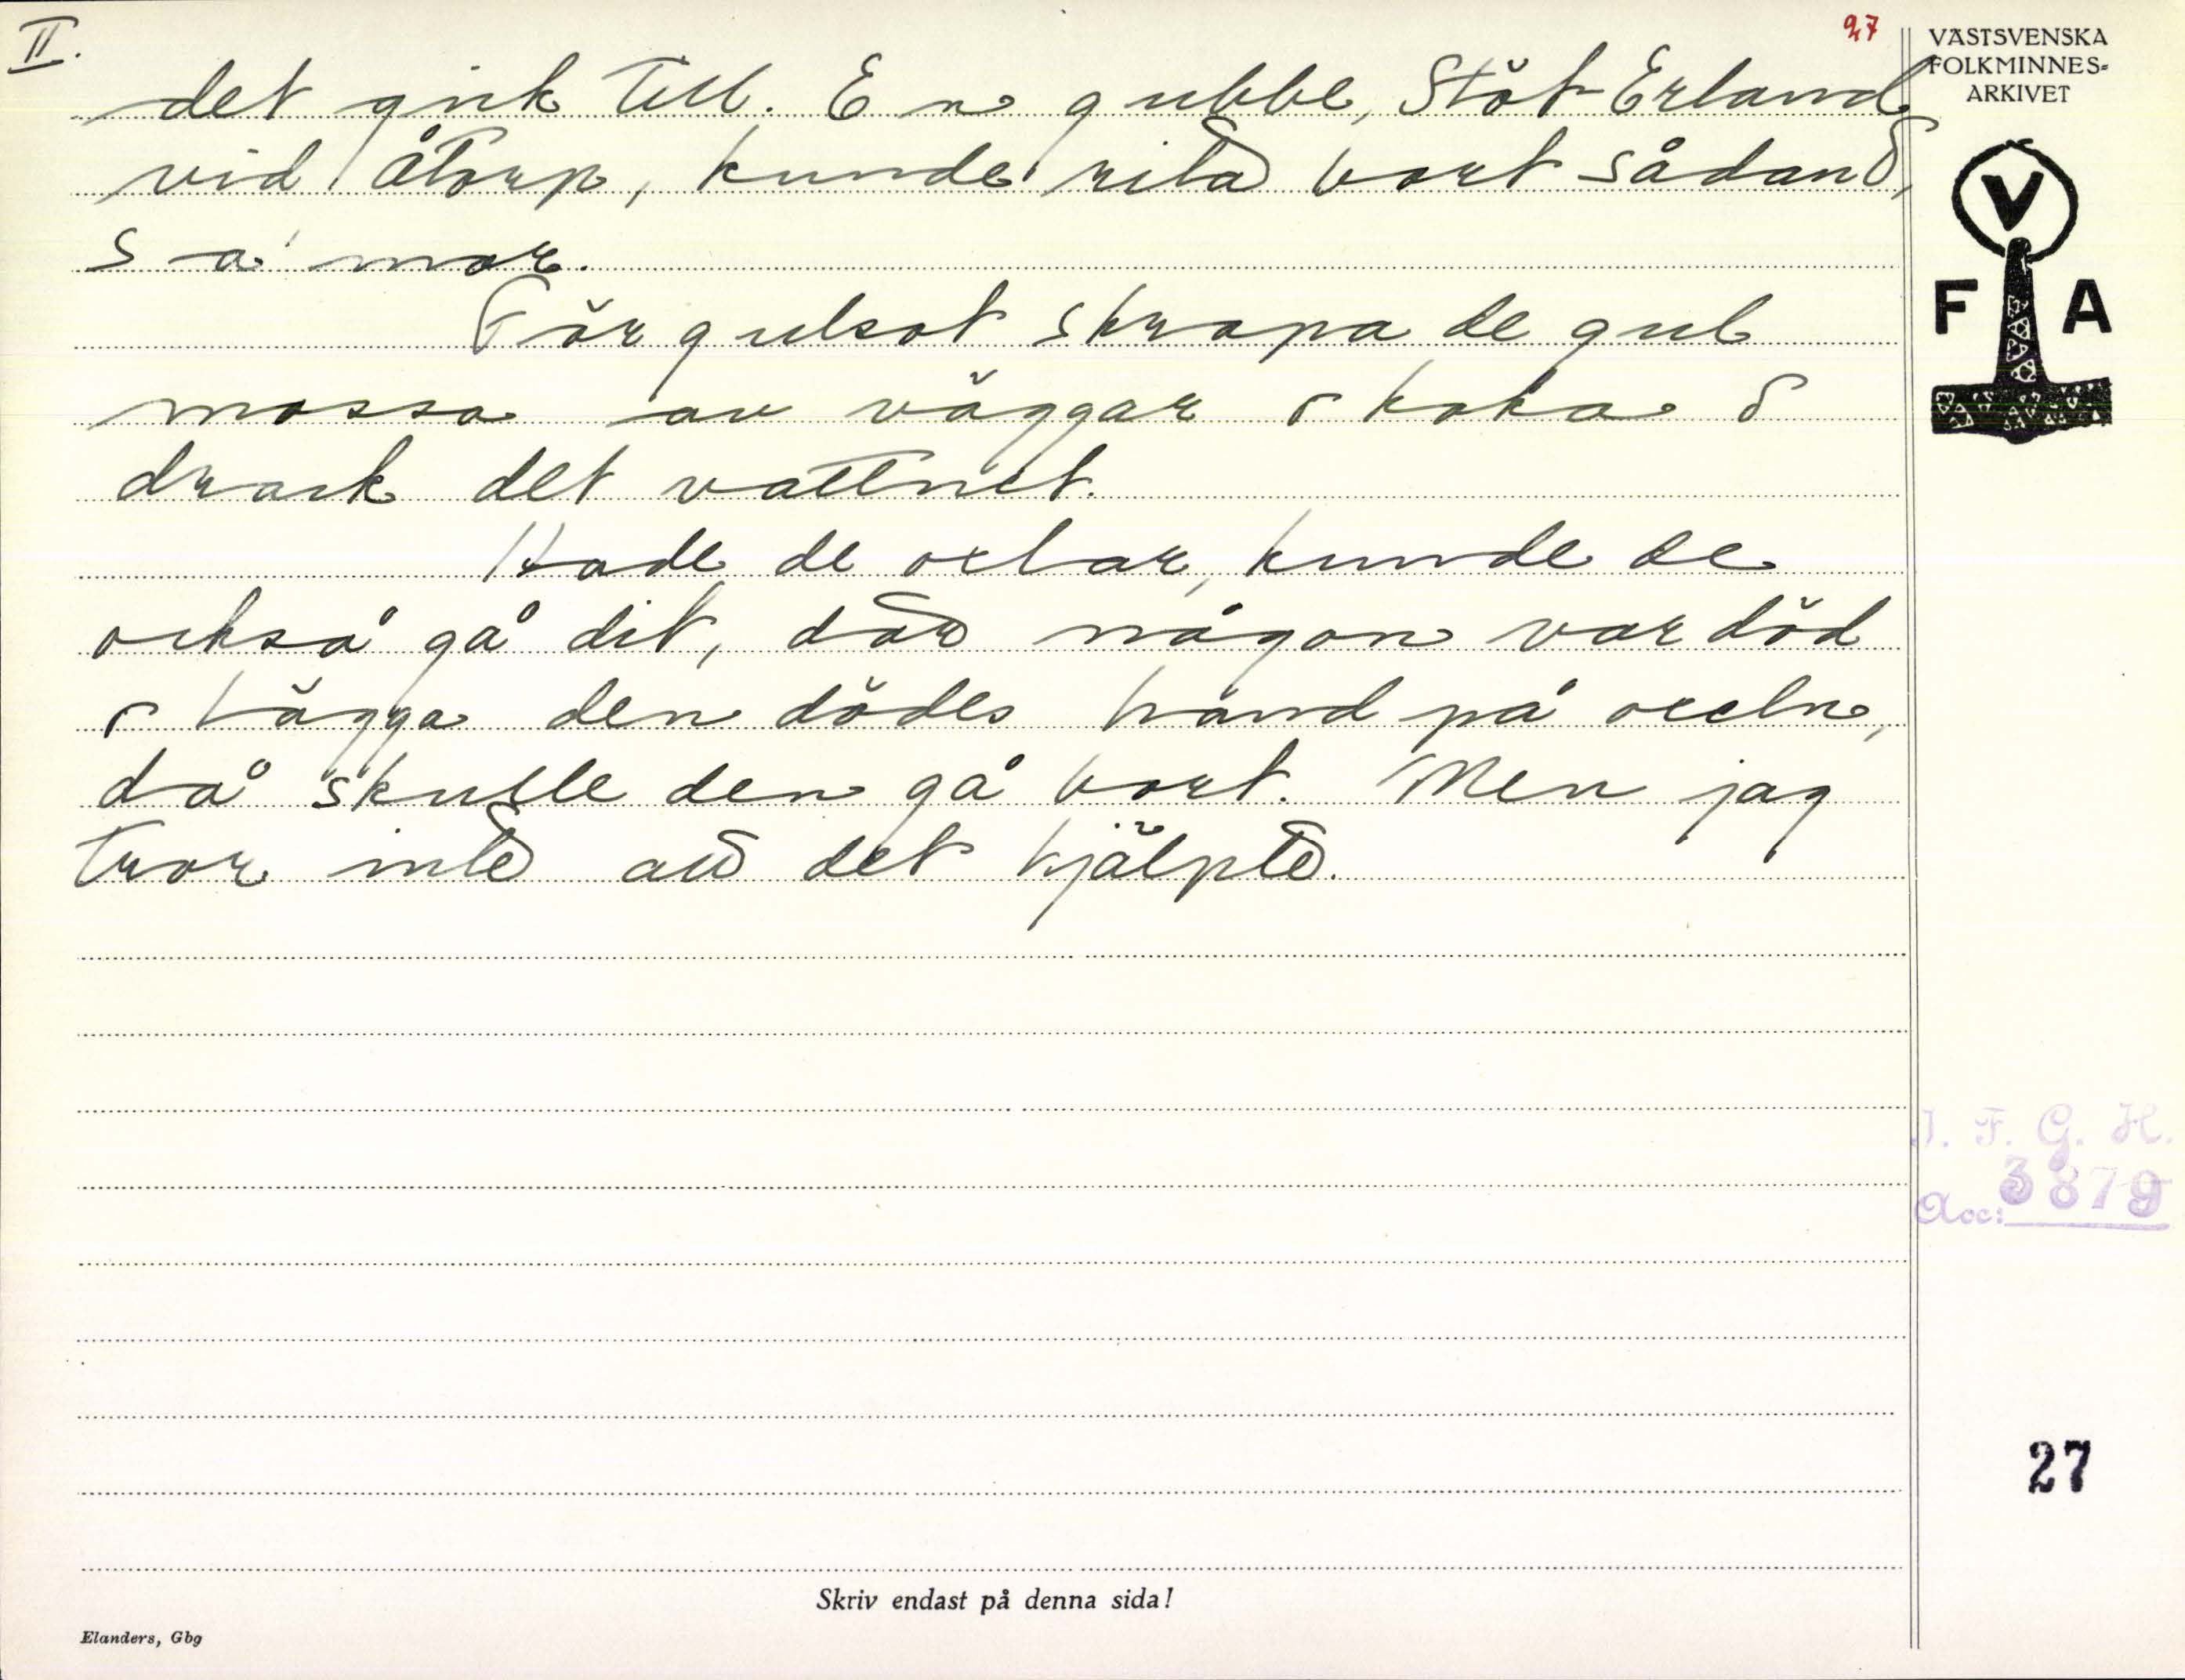 II.
27
det gick till. En gubbe, Stöt-Erland
vid Åtorp, kunde rita bort sådand,
sa' mor.
För gulsot skrapa de gul
mossa av väggar o koka o
drack det vattnet.
Hade de oxlar, kunde de
också gå dit, där någon var död
o lägga den dödes hand på oxeln,
då skulle den gå bort. Men jag
tror inte att det hjälpte.
VÄSTSVENSKA
FOLKMINNES-
ARKIVET
V
F A
I. F. G. H.
Acc: 3879
27
Skriv endast på denna sida!
Elanders, Gbg